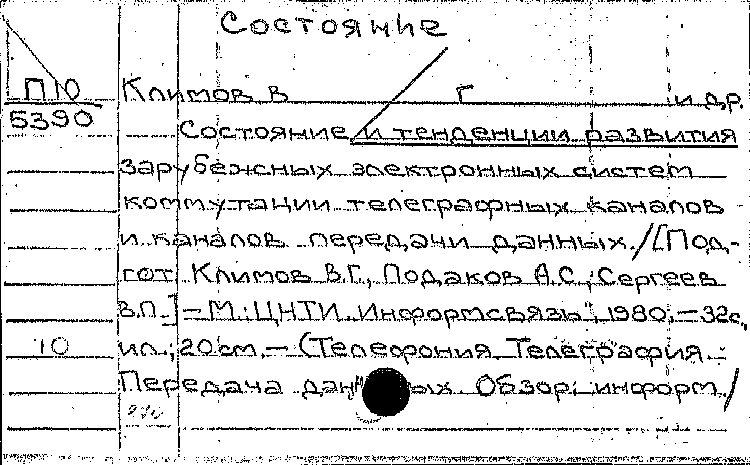 Состояние
ПЮ Климов В Г и др.
5390 Состояние и тенденции развития
зарубежных электронных систем
коммутации телеграфных каналов
и каналов передачи данных. / [Под-
гот. Климов В.Г., Подаков А.С., Сергеев
В.П.] – М.: ЦНТИ „Информсвязь", 1980. – 32с,
10 ил.; 20см. – (Телефония. Телеграфия.
Передача данных. Обзор. информ. /